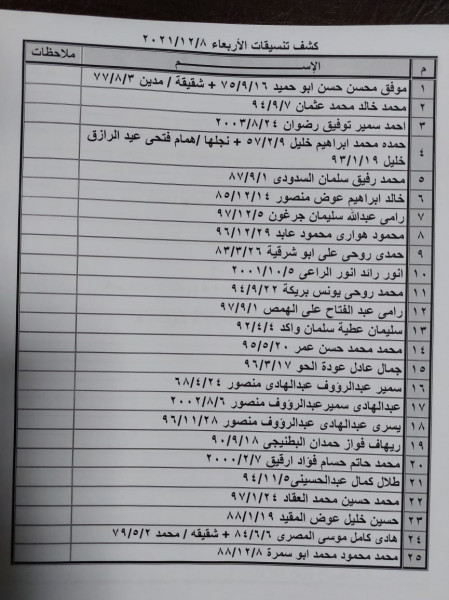 كشف تنسيقات الأربعاء ٢٠٢١/١٢/٨
م الإســـــــم ملاحظات
١ موفق محسن حسن ابو حميد ٧٥/٩/١٦ + شقيقة / مدين ٧٧/٨/٣
٢ محمد خالد محمد عثمان ٩٤/٩/٧
٣ احمد سمير توفيق رضوان ٢٠٠٣/٨/٢٤
٤ حمده محمد ابراهيم خليل ٥٧/٢/٩ + نجلها /همام فتحى عبد الرازق
خليل ٩٣/١/١٩
٥ محمد رفيق سلمان السدودى ٨٧/٩/١
٦ خالد ابراهيم عوض منصور ٨٥/١٢/١٤
٧ رامى عبدالله سليمان جرغون ٩٧/١٢/٥
٨ محمود هوارى محمود عابد ٩٦/١٢/٢٩
٩ حمدى روحى على ابو شرقية ٨٣/٣/٢٦
١٠ انور رائد انور الراعى ٢٠٠١/١٠/٥
١١ محمد روحى يونس بريكة ٩٤/٩/٢٢
١٢ رامى عبد الفتاح على الهمص ٩٧/٩/١
١٣ سليمان عطية سلمان واكد ٩٢/٤/٤
١٤ محمد محمد حسن عمر ٩٥/٥/٢٠
١٥ جمال عادل عودة الحو ٩٦/٣/١٧
١٦ سمير عبدالرؤوف عبدالهادى منصور ٦٨/٤/٢٤
١٧ عبدالهادى سميرعبدالرؤوف منصور ٢٠٠٢/٨/٦
١٨ يسرى عبدالهادى عبدالرؤوف منصور ٩٦/١١/٢٨
١٩ ريهاف فواز حمدان البطنيجى ٩٠/٩/١٨
٢٠ محمد حاتم حسام فؤاد ارقيق ٢٠٠٠/٢/٧
٢١ طلال كمال عبدالحسينى ٩٤/١١/٥
٢٢ محمد حسين محمد العقاد ٩٧/١/٢٤
٢٣ حسين خليل عوض المقيد ٨٨/١/١٩
٢٤ هادى كامل موسى المصرى ٨٤/٦/٦ + شقيقه / محمد ٧٩/٥/٢
٢٥ محمد محمود محمد ابو سمرة ٨٨/١٢/٨